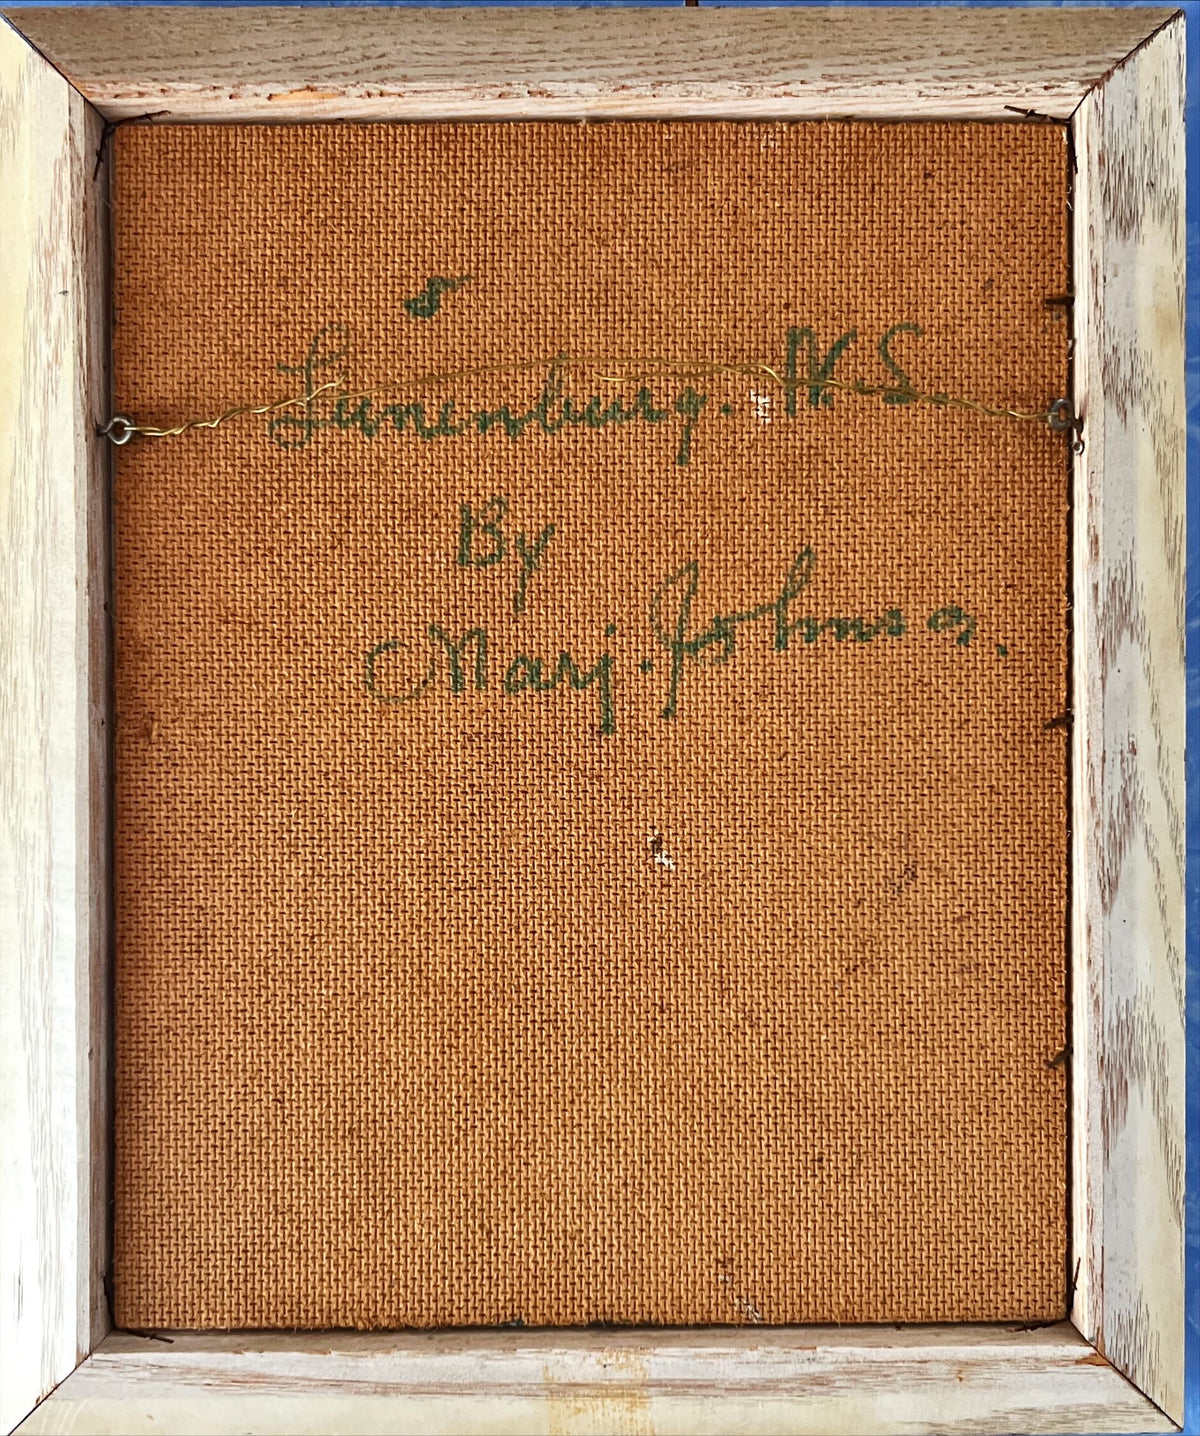 5
Lunenburg. N.S.
By
Marj. Johnson.